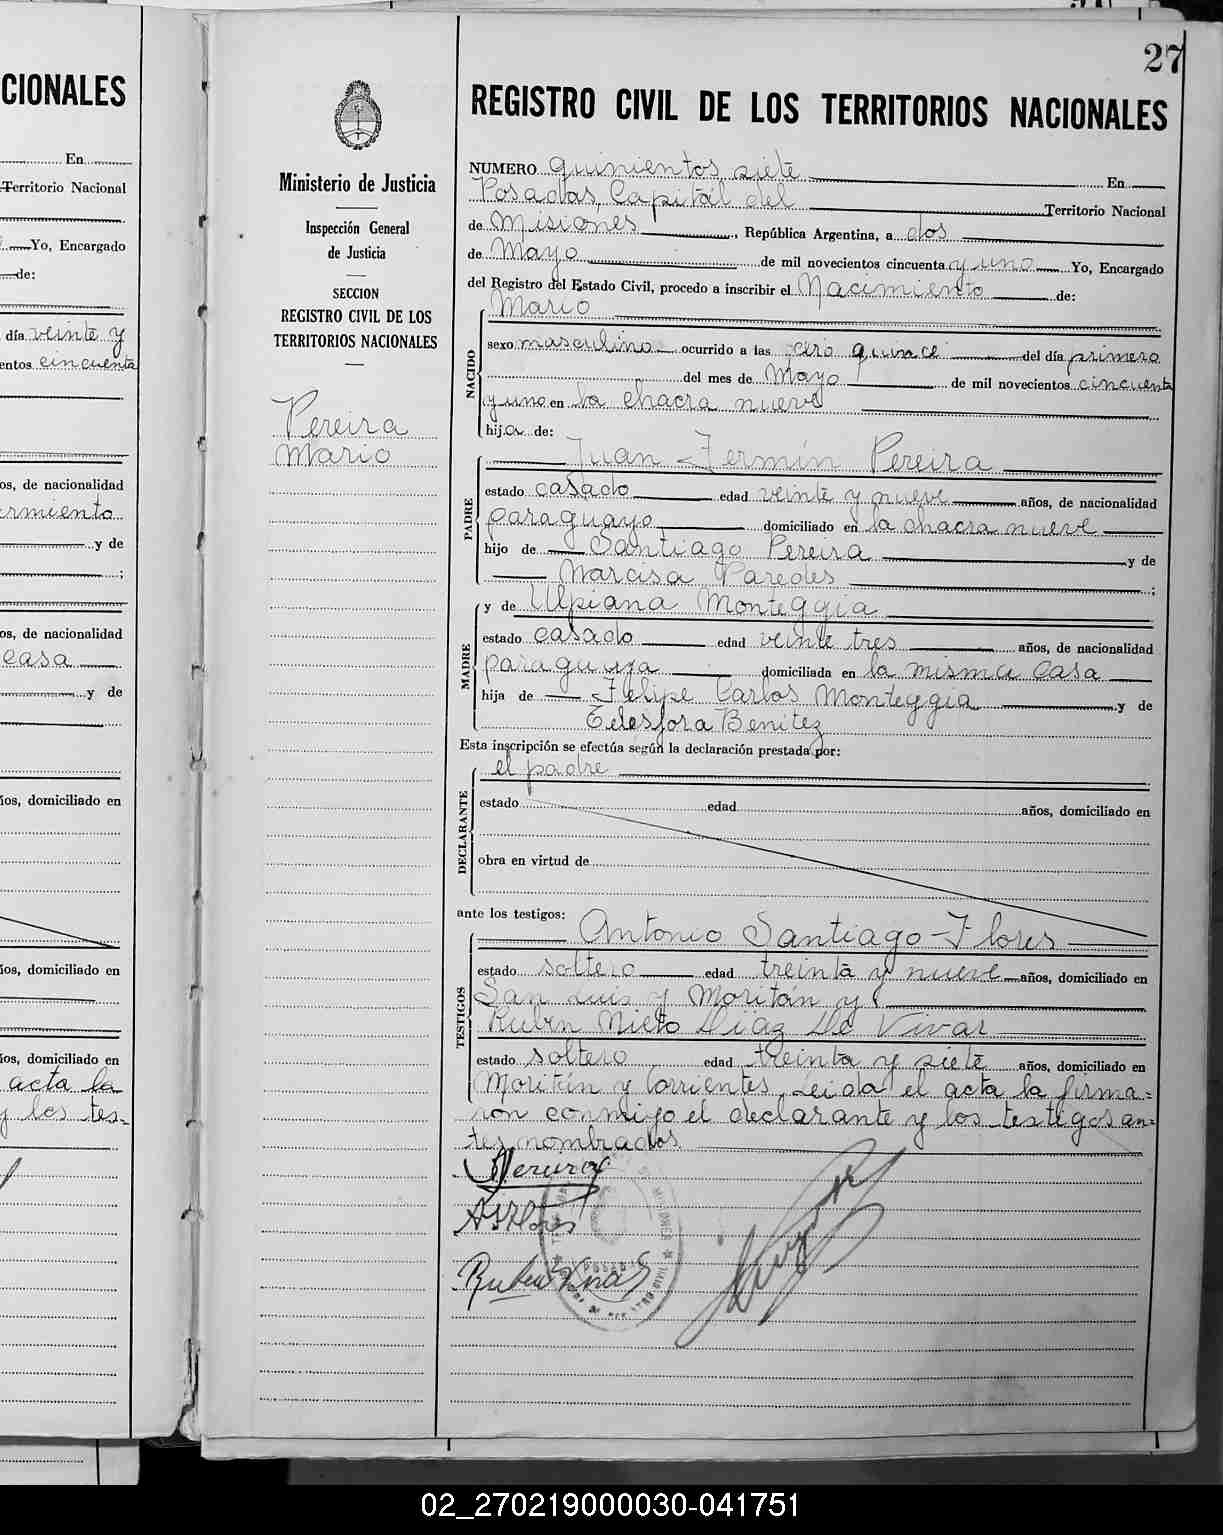 CIONALES
En
Territorio Nacional
Yo, Encargado
de:
día veinte y
entos cincuenta
os, de nacionalidad
y de
;
os, de nacionalidad
casa
y de
ños, domiciliado en
ños, domiciliado en
ños, domiciliado en
acta la
y los tes=
Ministerio de Justicia
Inspección General
de Justicia
SECCION
REGISTRO CIVIL DE LOS
TERRITORIOS NACIONALES
Pereira
Mario
27
REGISTRO CIVIL DE LOS TERRITORIOS NACIONALES
NUMERO quinientos siete En
Posadas, Capitál del Territorio Nacional
de Misiones, República Argentina, a dos
de Mayo de mil novecientos cincuenta y uno Yo, Encargado
del Registro del Estado Civil, procedo a inscribir el Nacimiento de:
NACIDO
Mario
sexo masculino ocurrido a las cero quince del día primero
del mes de Mayo de mil novecientos cincuenta
y uno en la chacra nueve
hijo de:
PADRE
Juan Fermín Pereira
estado casado edad veinte y nueve años, de nacionalidad
paraguayo domiciliado en la chacra nueve
hijo de Santiago Pereira y de
Narcisa Paredes ;
MADRE
y de Ulpiana Monteggia
estado casado edad veinte tres años, de nacionalidad
paraguya domiciliada en la misma casa
hija de Felipe Carlos Monteggia y de
Telesfora Benitez
Esta inscripción se efectúa según la declaración prestada por:
DECLARANTE
el padre
estado edad años, domiciliado en
obra en virtud de
ante los testigos:
TESTIGOS
Antonio Santiago Flores
estado soltero edad treinta y nueve años, domiciliado en
San Luis y Moritán y
Rubén Nieto Díaz De Vivar
estado soltero edad treinta y siete años, domiciliado en
Moritán y Corrientes. Leida el acta la firma=
ron conmigo el declarante y los testigos an=
tes nombrados
A S Flores
MISIONES
02_270219000030-041751